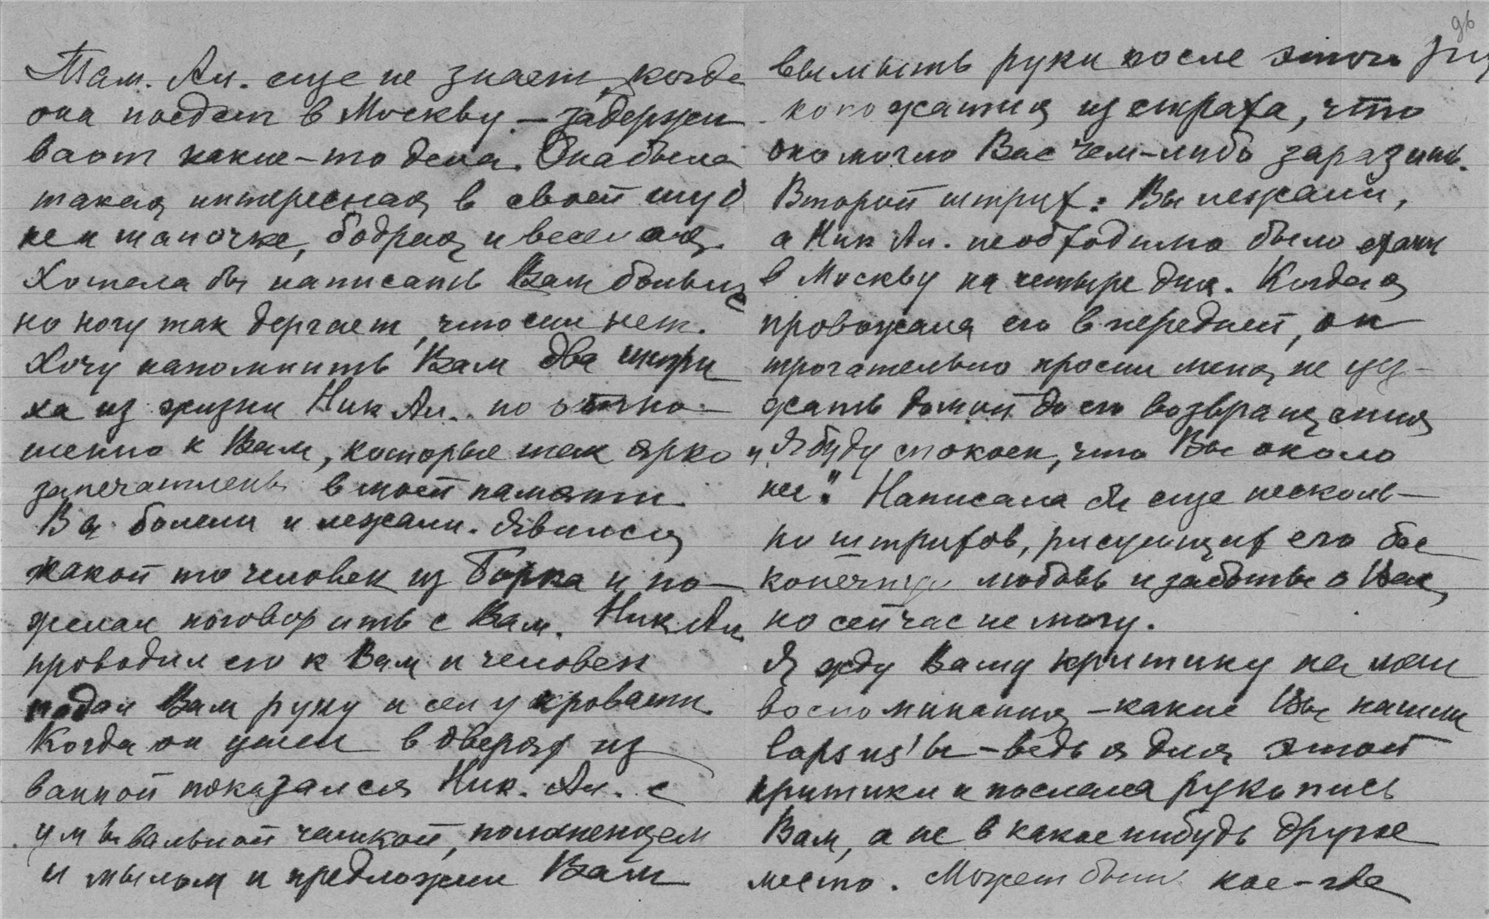 Там. Ал. еще не знает, когда
она поедет в Москву – задержи
вают какие-то дела. Она была
такая интересная в своей шуб
ке и шапочке, бодрая и веселая.
Хотела бы написать Вам больше
но ногу так дергает, что сил нет.
Хочу напомнить Вам два штри
ха из жизни Ник Ал. по отно-
шению к Вам, которые так ярко
запечатлены в моей памяти
Вы болели и лежали. Явился
какой то человек из Борка и по-
желал поговорить с Вам. Ник Ал.
проводил его к Вам и человек
подал Вам руку и сел у кровати
Когда он ушел в дверях из
ванной показался Ник. Ал. с
умывальной чашкой, полотенцем
и мылом и предложил Вам
96
вымыть руки после этого ру
копожатия из страха, что
оно могло Вас чем-либо заразить.
Второй штрих: Вы лежали,
а Ник Ал. необходимо было
в Москву на четыре дня. Когда я
провожала его в передней, он
трогательно просил меня не уез-
жать домой до его возвращения
"Я буду спокоен, что Вы около
нее". Написала бы еще несколь-
ко штрихов, рисующих его бес
конечную любовь и заботы о Вас,
но сейчас не могу.
Я жду Вашу критику на мои
воспоминания – какие Вы нашли
lapsus'ы – ведь я для этой
критики и послала рукопись
Вам, а не в какое нибудь другое
место. Может быть кое-где